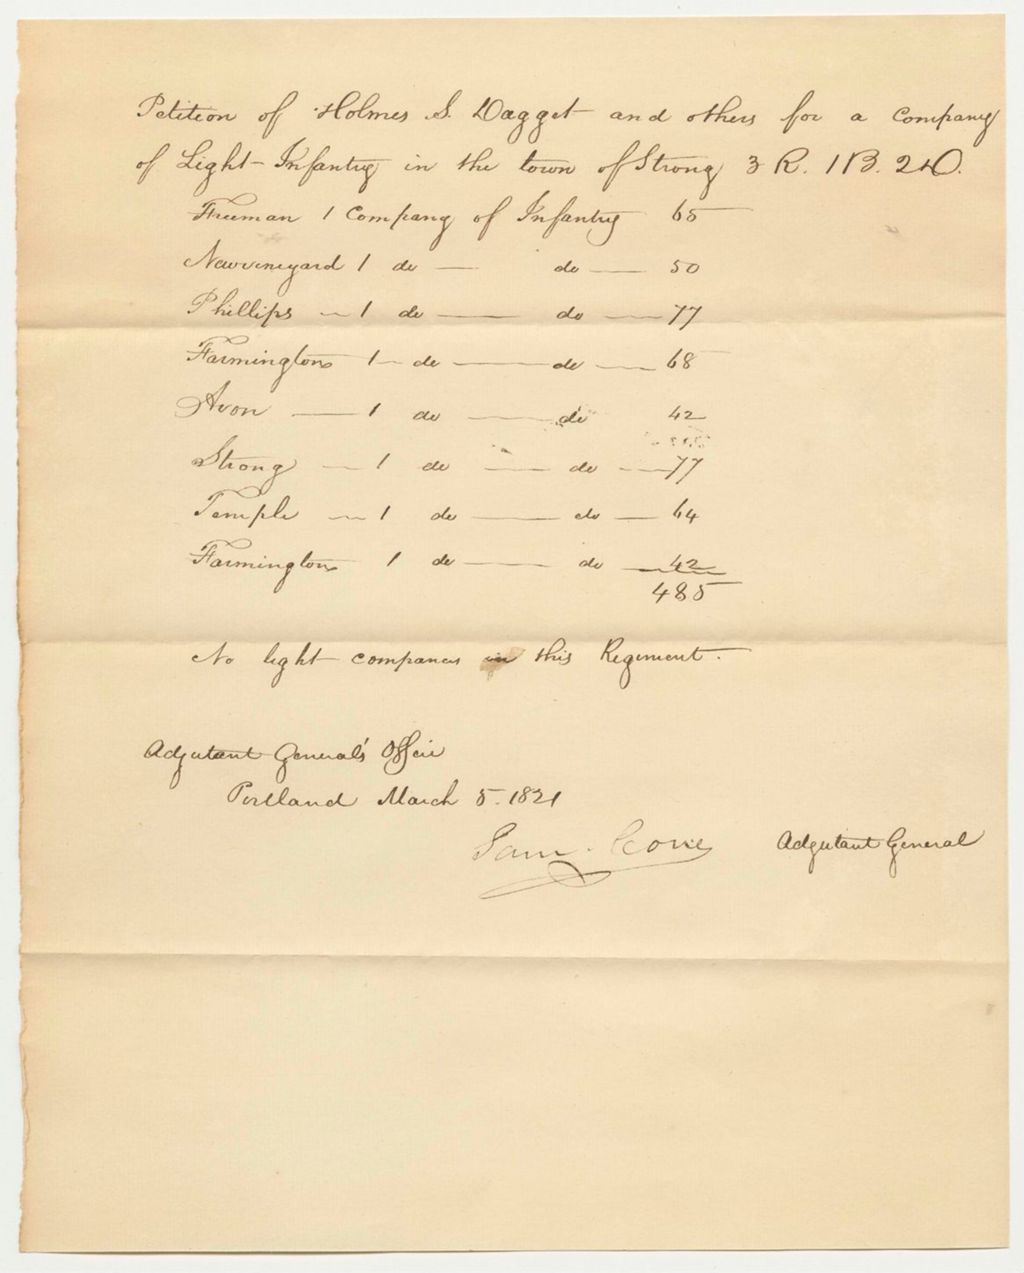 Petition of Holmes S. Dagget and others for a Company
of Light Infantry in the town of Strong 3 R. 1 B. 2 D.
Freeman 1 Company of Infantry 65
Newvineyard 1 do — do — 50
Phillips — 1 do — do — 77
Farmington 1 — do — do — 68
Avon — 1 do — do 42
Strong — 1 do — do — 77
Temple — 1 do — do — 64
Farmington 1 do — do — 42
485
No light companies in this Regiment.
Adjutant General's Office
Portland March 5. 1821
Sam. Cony Adjutant General